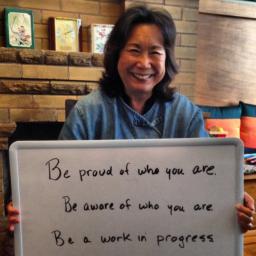 Be proud of who you are.
Be aware of who you are
Be a work in progress